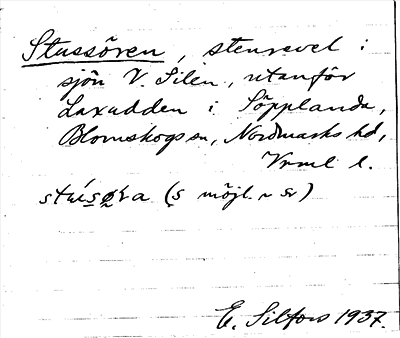 Stussören, stenrevel i
sjön V. Silen, utanför
Laxudden i Söpplanda,
Blomskogs sn, Nordmarks hd,
Vrml l.
(s möjl. sr)
E. Silfors 1937.